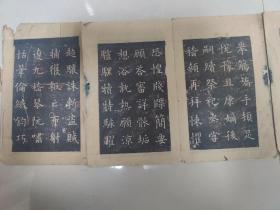 舉觴矯手頓足
悅豫且康嫡後
嗣續祭祀蒸嘗
稽顙再拜悚懼
恐惶牋牒簡要
顧答審詳骸垢
想浴執熱願涼
驢騾犢特駭躍
超驤誅斬盜賊
捕獲叛亡布射
遼丸嵇琴阮嘯
恬筆倫紙鈞巧